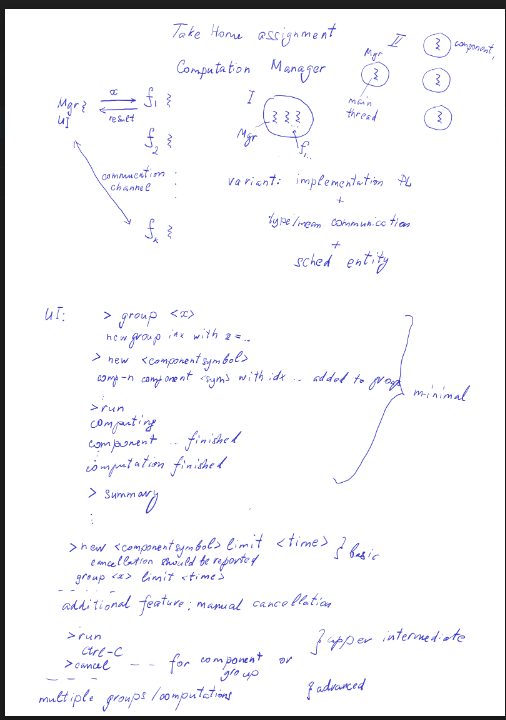 Take Home assignment
Computation Manager
Mgr
UI
x
result
f1
f2
communication
channel
fk
I
Mgr
f1...
II
Mgr
main
thread
component,
variant: implementation PL
+
type/mean communication
+
sched entity
UI:
> group <x>
new group idx with x = ..
> new <component symbol>
comp-n component <sym> with idx .. added to group
⋮
> run
computing
component .. finished
computation finished
> summary
⋮
minimal
> new <component symbol> limit <time> } basic
cancellation should be reported
group <x> limit <time>
- - - - - -
additional feature: manual cancellation
> run
Ctrl-C
> cancel - - - for component or
group
} upper intermediate
- - - -
multiple groups/computations
{ advanced